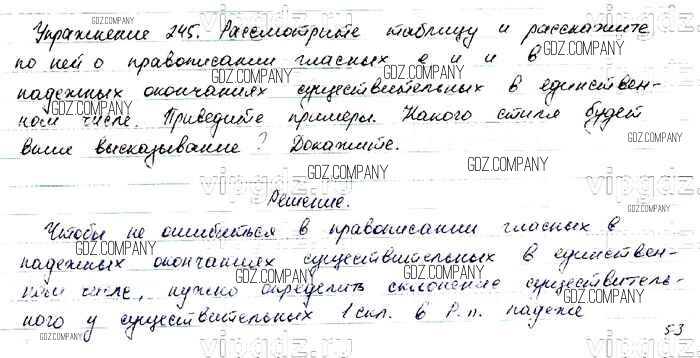 Упражнение 245. Рассмотрите таблицу и расскажите
по ней о правописании гласных е и и в
падежных окончаниях существительных в единствен-
ном числе. Приведите примеры. Какого стиля будет
ваше высказывание? Докажите.
Решение.
Чтобы не ошибиться в правописании гласных в
падежных окончаниях существительных в единствен-
ном числе, нужно определить склонение существитель-
ного у существительных 1 скл. в Р.п. падеже
53
GDZ.COMPANY
vipgdz.ru